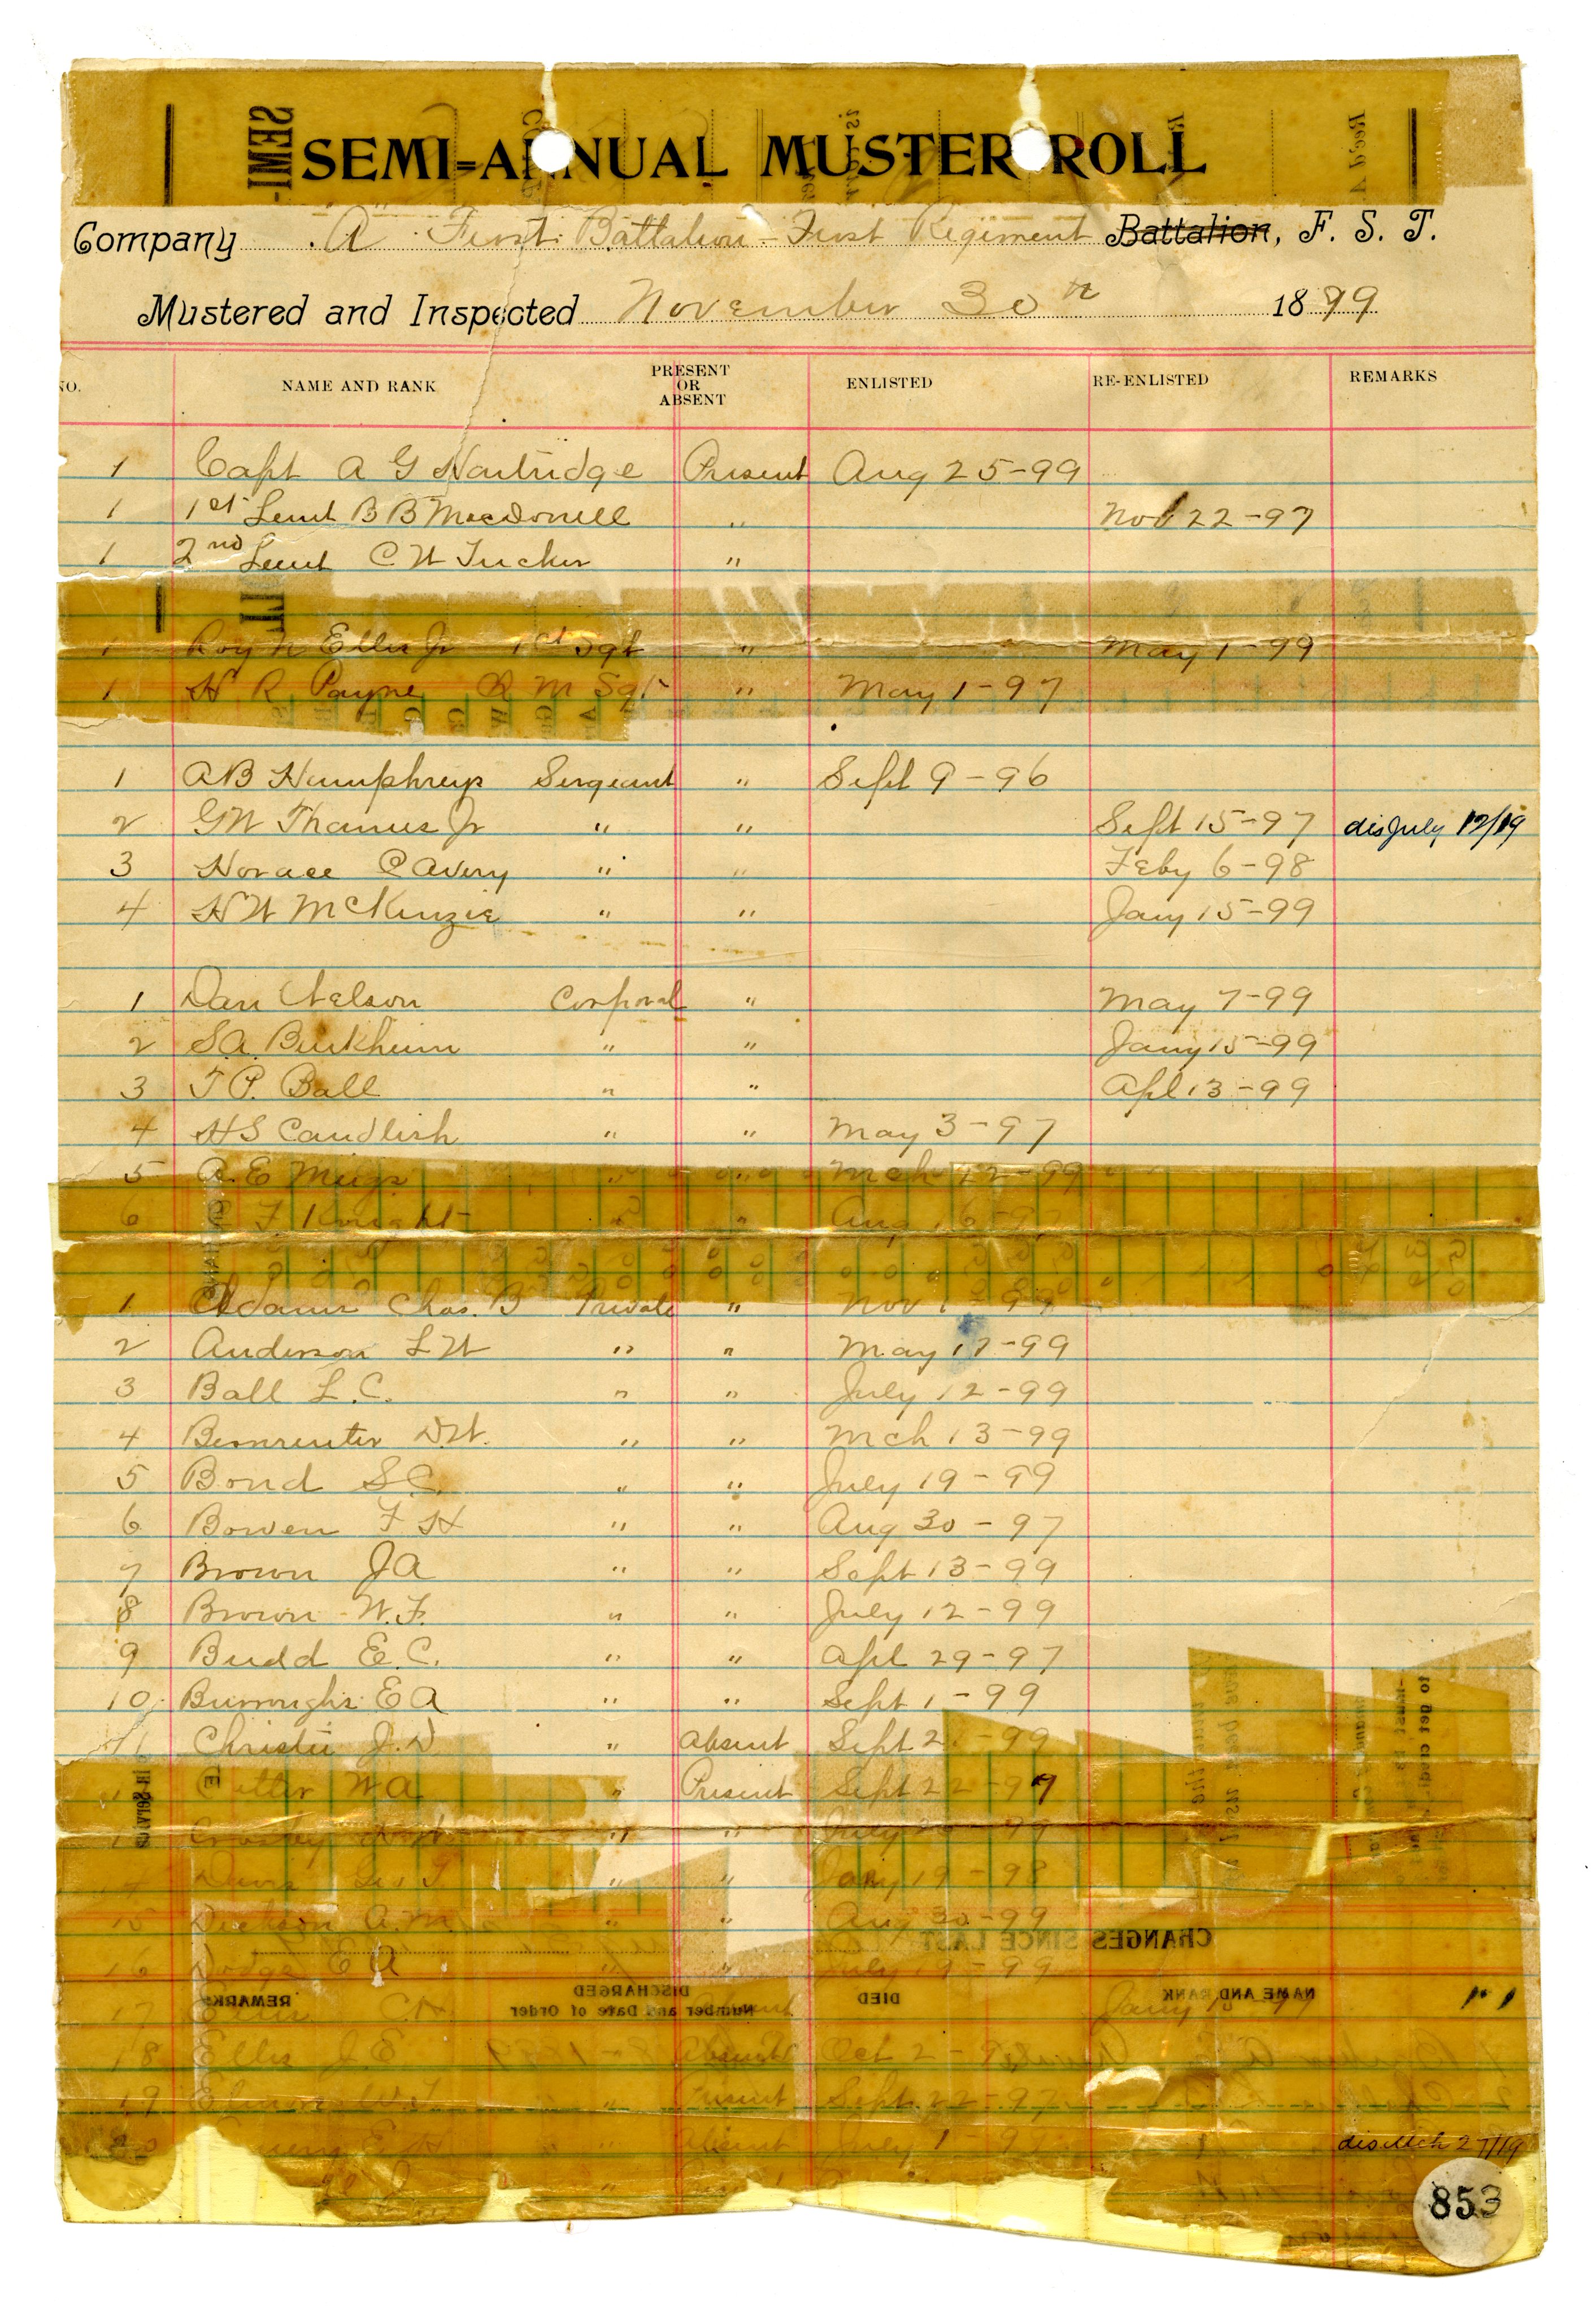 SEMI=ANNUAL MUSTER ROLL
Company A First Battalion - First Regiment Battalion, F. S. T.
Mustered and Inspected November 30th 1899
NO. NAME AND RANK PRESENT OR ABSENT ENLISTED RE-ENLISTED REMARKS
1 Capt A G Hartridge Present Aug 25-99
1 1st Lieut B B MacDonell " Nov 22-97
1 2nd Lieut C W Tucker "
1 Roy W Ellis Jr 1st Sgt " May 1-99
1 H R Payne Q M Sgt " May 1-97
1 AB Humphreys Sergeant " Sept 9-96
2 GW Thames Jr " " Sept 15-97 dis July 12/19
3 Horace C Avery " " Feby 6-98
4 H W McKenzie " " Jany 15-99
1 Dan Nelson Corporal " May 7-99
2 S.A. Burkheim " " Jany 15-99
3 T P. Ball " " Apl 13-99
4 H S Candlish " " May 3-97
5 A. E Migs " " Mch 12-99
6 F Knight " " Aug 16-97
1 Adams Chas. B Private " Nov 1-99
2 Anderson L W " " May 17-99
3 Ball L. C. " " July 12-99
4 D.W. " " Mch 13-99
5 Bond S C. " " July 19-99
6 Bowen F H " " Aug 30-97
7 Brown J A " " Sept 13-99
8 Brown W. F. " " July 12-99
9 Budd E. C. " " Apl 29-97
10 Burroughs E A " " Sept 1-99
11 Christie J. D " Absent Sept 2-99
Cotter W A " Present Sept 22-97
Crosby " " July
14 Davis Geo T " " Jany 19-98
15 Dickson A. M. " " Aug 30-99
16 Dodge E A " " July 19-99
CHANGES SINCE LAST
REMARKS DISCHARGED Number and Date of Order DIED NAME AND RANK
17 C H. Absent Jany 15-97
18 Ellis J. E. Absent Oct 2-
19 W. F. " Present Sept. 22-97
20 E H " Absent July 1-99 dis Mch 27/19
853